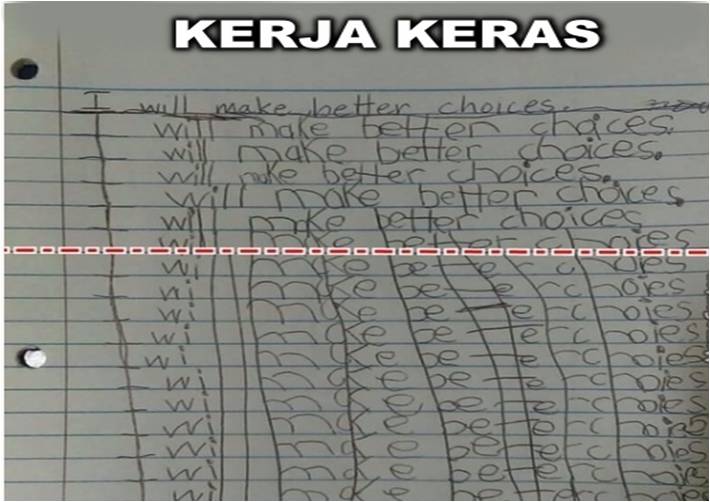 KERJA KERAS
I will make better choices.
I will make better choices.
I will make better choices.
I will make better choices.
I will make better choices.
I will make better choices
I will make better choies
I will make better choies
I will make better choies
I will make better choies
I will make better choies
I will make better choies
I will make better choies
I will make better choies
I will make better choies
I will make better choies
I will make better choies